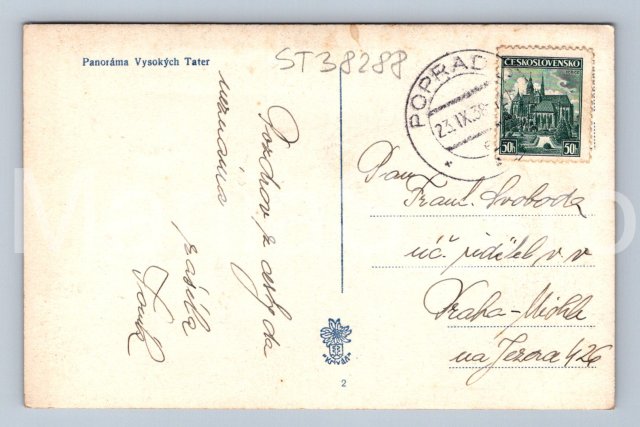 Panoráma Vysokých Tater
ST38288
POPRAD
23.IX.38
ČESKOSLOVENSKO
50h 50h
Pozdrav z cesty da
zasílá
Pan
Frant. Svoboda
úč. ředitel v v
Praha-Michle
na Jezeře 426
2